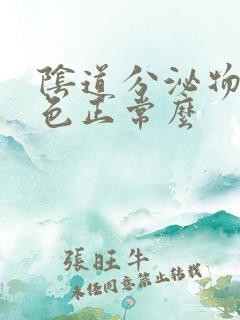 陰道分泌物
色正常麼
張旺牛
未任同意禁止转载